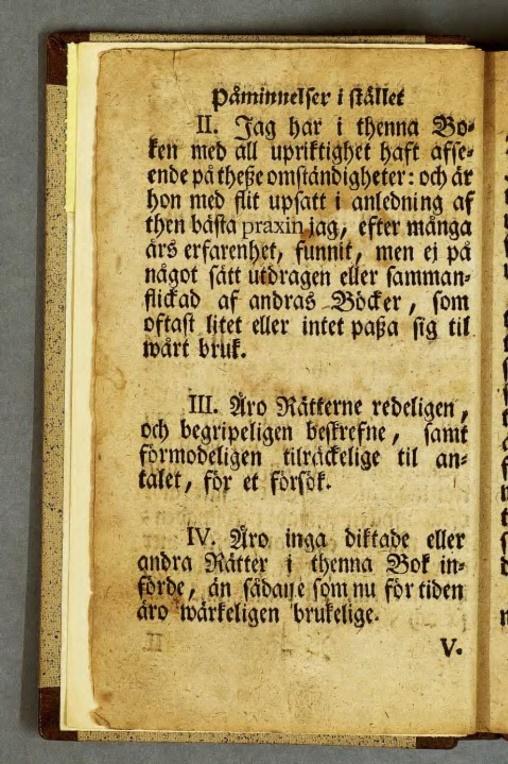 Påminnelser i stället
II. Jag har i thenna Bo-
ken med all upriktighet haft afse-
ende på theße omständigheter: och är
hon med flit upsatt i anledning af
then bästa praxin jag, efter många
års erfarenhet, funnit, men ej på
något sätt utdragen eller samman-
flickad af andras Böcker, som
oftast litet eller intet paßa sig til
wårt bruk.
III. Äro Rätterne redeligen,
och begripeligen beskrefne, samt
förmodeligen tilräckelige til an-
talet, för et försök.
IV. Äro inga diktade eller
andra Rätter i thenna Bok in-
förde, än sådane som nu för tiden
äro wärkeligen brukelige.
V.